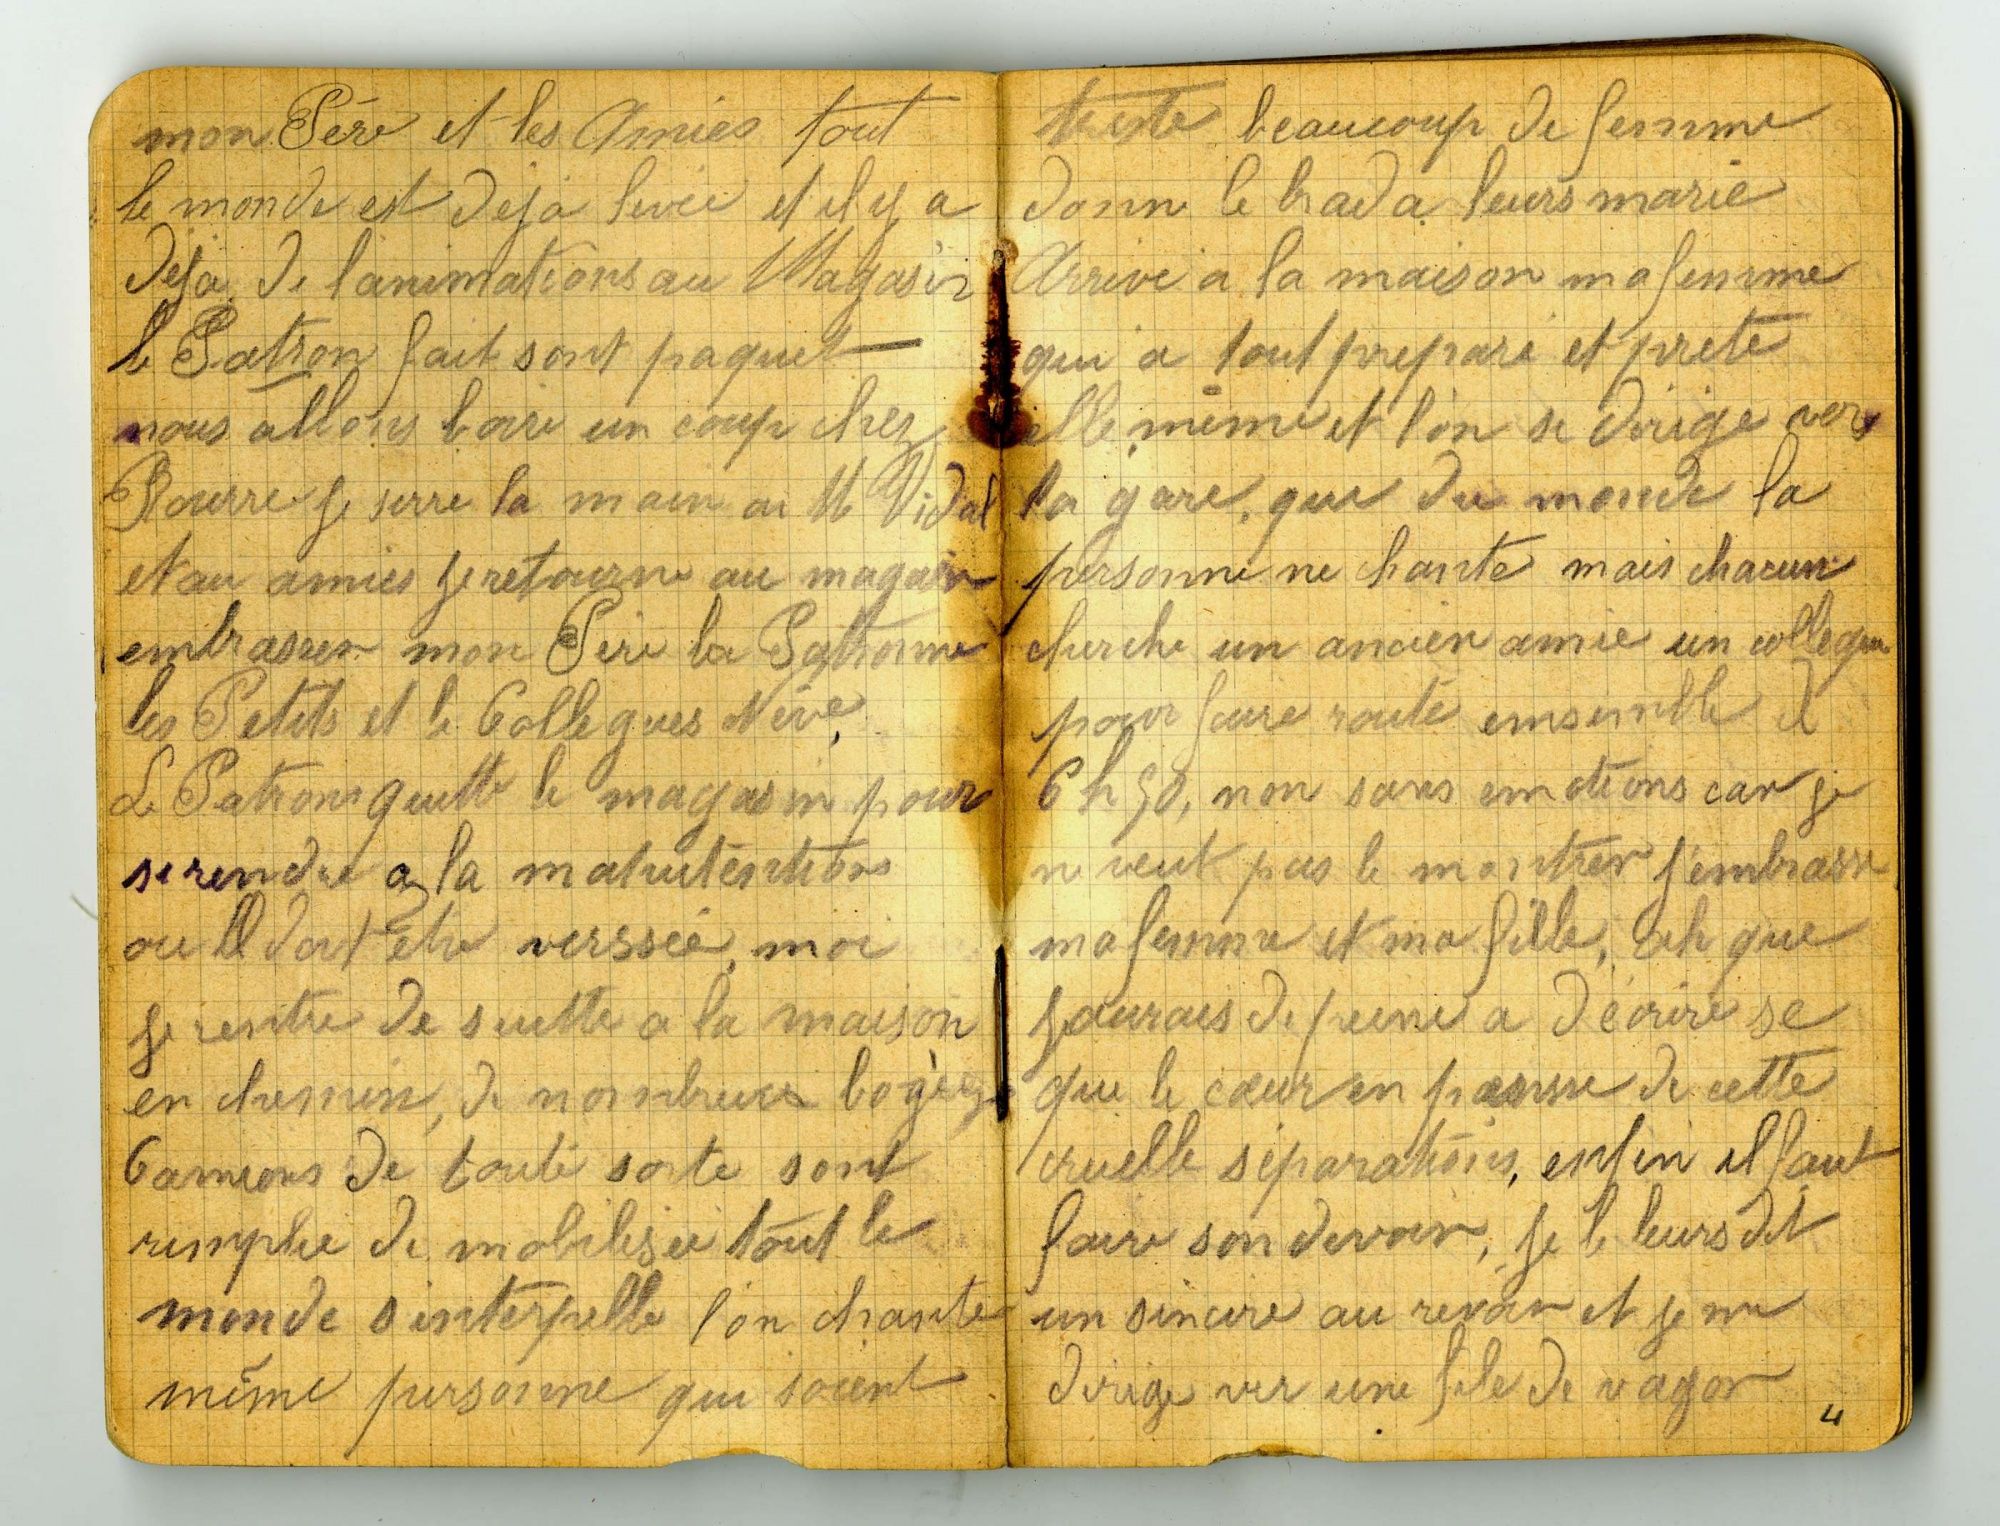 mon Père et les Amies tout
le monde est deja levée et il y a
deja de l'animations au Magasin
le Patron fait sont paquet
nous allons boire un coup chez
Bourre je serre la main a M Vidal
et au amies je retourne au magasin
embrasser mon Père la Patronne
les Petits et le Collegues Nève
Le Patron quitte le magasin pour
se rendre a la manutentions
ou Il doit être verssée, moi
je rentre de suitte a la maison
en chemin, de nombreux
Camions de toute sorte sont
remplie de mobilisée tout le
monde s'interpelle l'on chante
même personne qui soient
triste beaucoup de femme
donne le bras a leurs marie
Arrive a la maison ma femme
qui a tout prepare et prete
elle même et l'on se dirige vers
la gare, que du monde la
personne ne chante mais chacun
cherche un ancien amie un collegue
pour faire route ensemble
6 h 50, non sans emotions car je
ne veut pas le montrer j'embrasse
ma femme et ma fille, ah que
j'aurais de peine a décrire se
que le cœur en pensse de cette
cruelle séparations, enfin il faut
faire son devoir, je le leurs dit
un sincere au revoir et je me
dirige ver une file de wagon
4